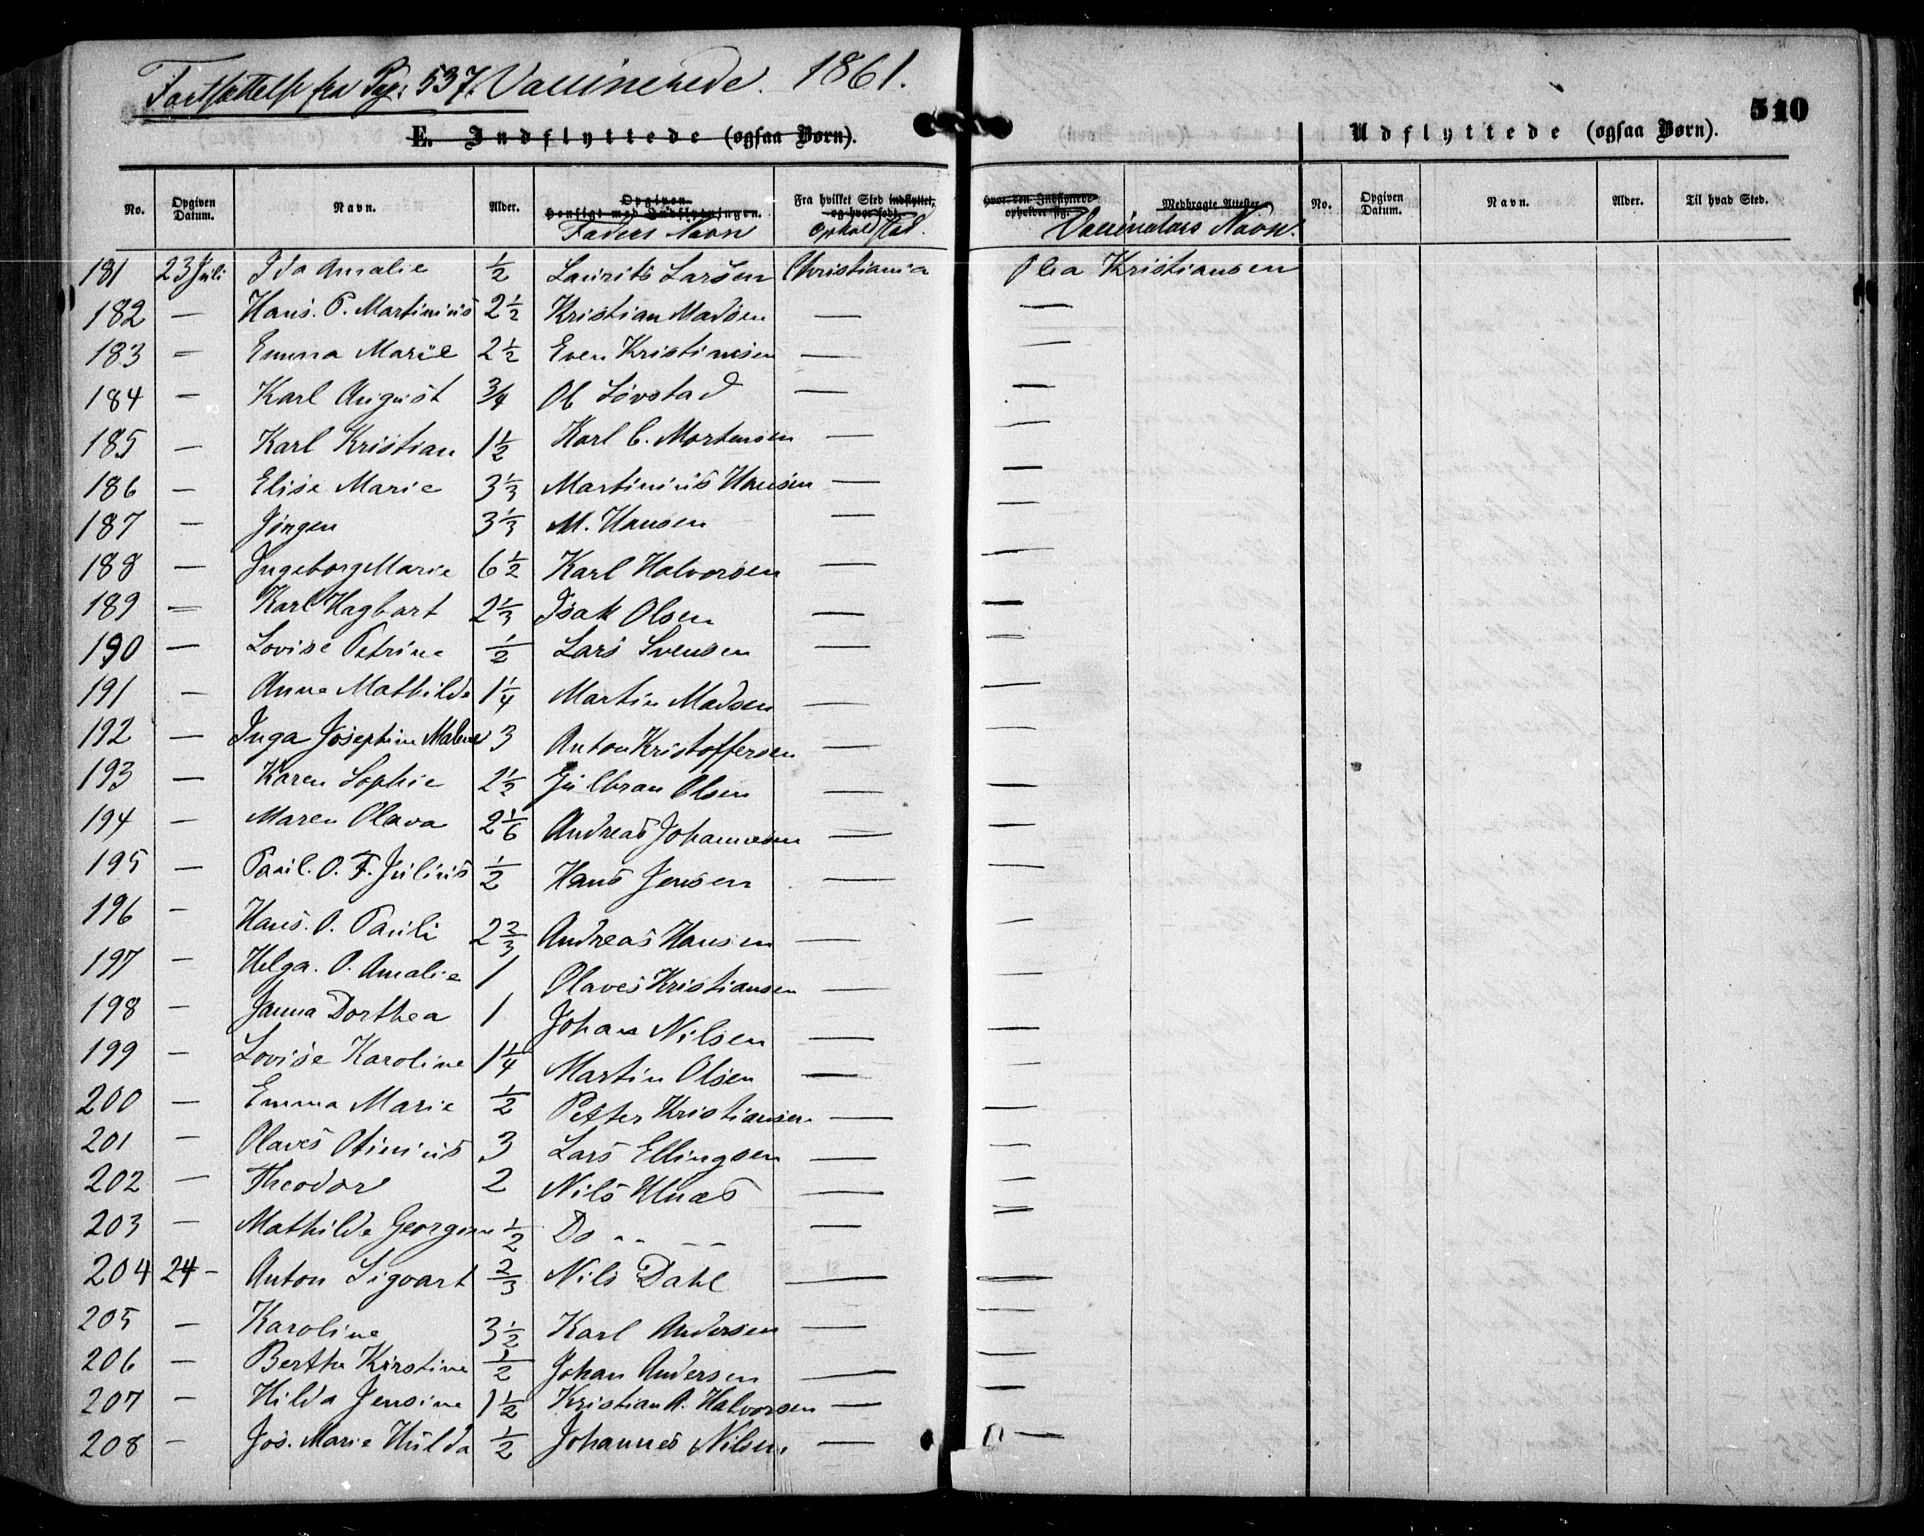 Fortsættelse fra Pag: 537. Vaccinerede. 1861.
510
E. Indflyttede (ogsaa Børn).
Udflyttede (ogsaa Børn).
No. Opgiven Datum. Navn. Alder. Opgiven Hensigt med Indflytningen. Fra hvilket Sted indflyttet, og hvor født. Hvor den Indflyttede opholder sig. Medbragte Attester. No. Opgiven Datum. Navn. Alder. Til hvad Sted.
Faders Navn Opholdsted. Vaccinators Navn.
181 23 Juli Ida Amalie ½ Laurits Larsen Christiania Olea Kristiansen
182 — Hans. P. Martinius 2½ Kristian Madsen — —
183 — Emma Marie 2½ Even Kristiansen — —
184 — Karl August ¾ Ol Løvstad — —
185 — Karl Kristian 1½ Karl C. Mortensen — —
186 — Elise Marie 3⅓ Martinius Hansen — —
187 — Jørgen 3⅓ M. Hansen — —
188 — Ingeborg Marie 6½ Karl Halvorsen — —
189 — Karl Hagbart 2⅓ Isak Olsen — —
190 — Lovise Petrine ½ Lars Svensen — —
191 — Anna Mathilde 1¼ Martin Madsen — —
192 — Inga Josephine 3 Anton Kristoffersen — —
193 — Karen Sophie 2½ Julbran Olsen — —
194 — Maren Olava 2⅙ Andreas Johannesen — —
195 — Paul. O. F. Julius ½ Hans Jensen — —
196 — Hans. O. Pauli 2⅔ Andreas Hansen — —
197 — Helga. O. Amalie 1 Olaves Kristiansen — —
198 — Janna Dorthea 1 Johan Nilsen — —
199 — Lovise Karoline 1¼ Martin Olsen — —
200 — Emma Marie ½ Petter Kristiansen — —
201 — Olaves Otinius 3 Lars Ellingsen — —
202 — Theodor 2 Nils Ulnæs — —
203 — Mathilde Georgine ½ Do „ — —
204 24 – Anton Sigvart ⅔ Nils Dahl — —
205 — Karoline 3½ Karl Andersen — —
206 — Berthe Kirstine ½ Johan Andersen — —
207 — Hilda Jensine 1½ Kristian A. Halvorsen — —
208 — Jos. Marie Hulda ½ Johannes Nilsen — —